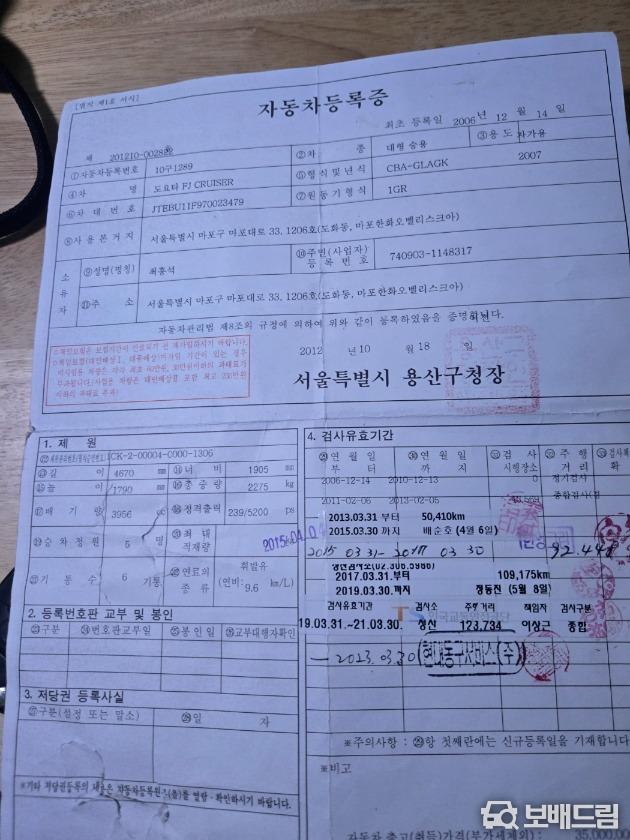 [별지 제1호 서식]
자동차등록증
최초 등록일 2006년 12월 14일
제 201210-002822
①자동차등록번호 10구1289 ②차 종 대형 승용 ③용도 자가용
④차 명 도요타 FJ CRUISER ⑤형식 및 년식 CBA-GLAGK 2007
⑥차대번호 JTEBU11F970023479 ⑦원동기형식 1GR
⑧사용본거지 서울특별시 마포구 마포대로 33, 1206호(도화동, 마포한화오벨리스크아)
소유자 ⑨성명(명칭) 최홍석 ⑩주민(사업자)등록번호 740903-1148317
⑪주 소 서울특별시 마포구 마포대로 33, 1206호(도화동, 마포한화오벨리스크아)
자동차관리법 제8조의 규정에 의하여 위와 같이 등록하였음을 증명합니다.
2012 년 10 월 18 일
서울특별시 용산구청장
1. 제 원
CK-2-00004-C000-1306
길 이 4670 mm 너 비 1905 mm
높 이 1790 mm 총중량 2275 kg
배 기 량 3956 cc 정격출력 239/5200 ps
승차정원 5 명 최대적재량 kg
기 통 수 6 기통 연료의 종류 휘발유 (연비: 9.6 km/L)
2015.04.0
2. 등록번호판 교부 및 봉인
구분 번호판교부일 봉인일 교부대행자확인
3. 저당권 등록사실
구분(설정 또는 말소) 일 자
※기타 저당권등록의 내용은 자동차등록원부(을)를 열람·확인하시기 바랍니다.
4. 검사유효기간
연월일부터 연월일까지 검사시행장소 주행거리
2006-12-14 2010-12-13 0 정기검사
2011-02-06 2013-02-05 종합검사
2013.03.31 부터 50,410km
2015.03.30 까지 배순호 (4월 6일)
2015 03.31 - 2017 03 30 92.448
2017.03.31.부터 109,175km
2019.03.30.까지 정동진 (5월 8일)
검사유효기간 검사소 주행거리 책임자 검사구분
19.03.31.~21.03.30. 성신 123,734 이상근 종합
- 2023.03.30 현대동구서비스(주)
※주의사항 : 항 첫째란에는 신규등록일을 기재합니다
※비고
자동차 출고(취득)가격(부가세제외) 35,000,00
보배드림